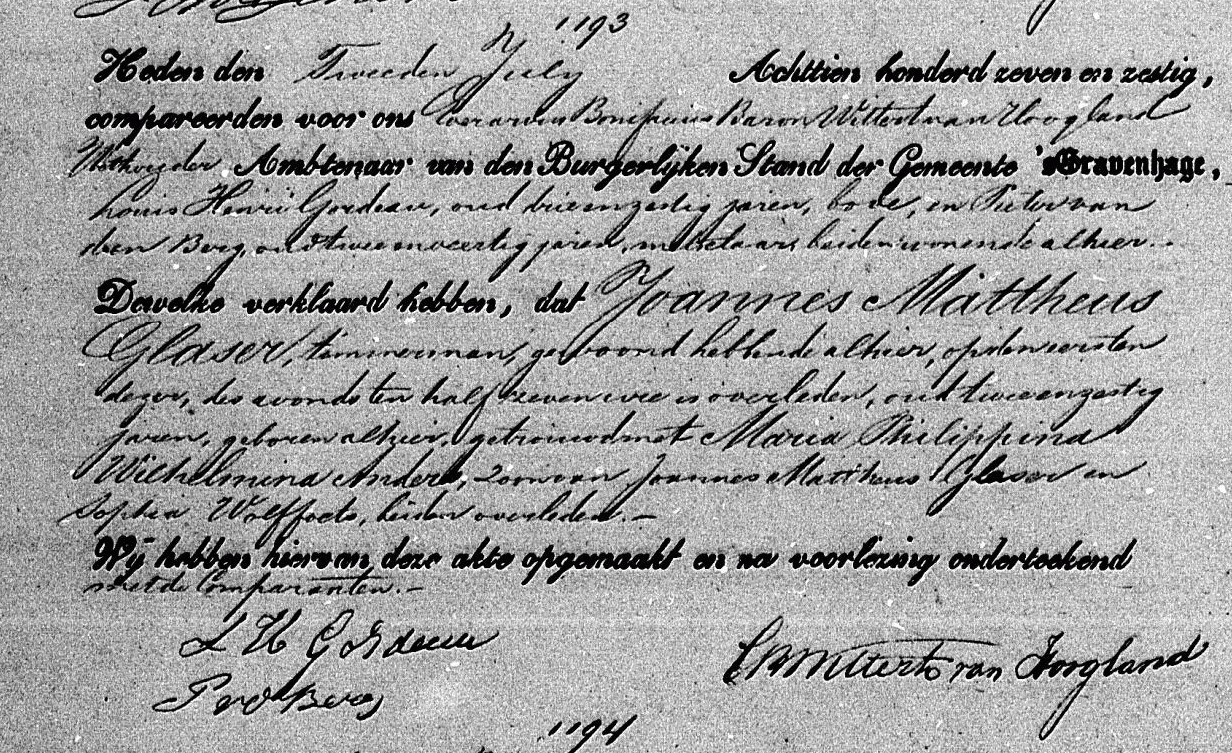 1193
Heden den Tweeden July Achttien honderd zeven en zestig,
compareerden voor ons Bonifacius Baron Wittert van Hoogland
Wethouder Ambtenaar van den Burgerlijken Stand der Gemeente 'sGravenhage,
Louis Henri Gordeau, oud drieenzestig jaren, bode, en Pieter van
den Berg, oud tweeenveertig jaren, beiden wonende alhier.
Dewelke verklaard hebben, dat Joannes Mattheus
Glaser, timmerman, gewoond hebbende alhier, op den eersten
dezer, des avonds ten half zeven ure is overleden, oud tweeenzestig
jaren, geboren alhier, getrouwd met Maria Philippina
Wilhelmina Anders, zoon van Joannes Mattheus Glaser en
Sophia beiden overleden.—
Wij hebben hiervan deze akte opgemaakt en na voorlezing onderteekend
met de Comparanten.—
L H Gordeau
Wittert van Hoogland
P vd Berg
1194